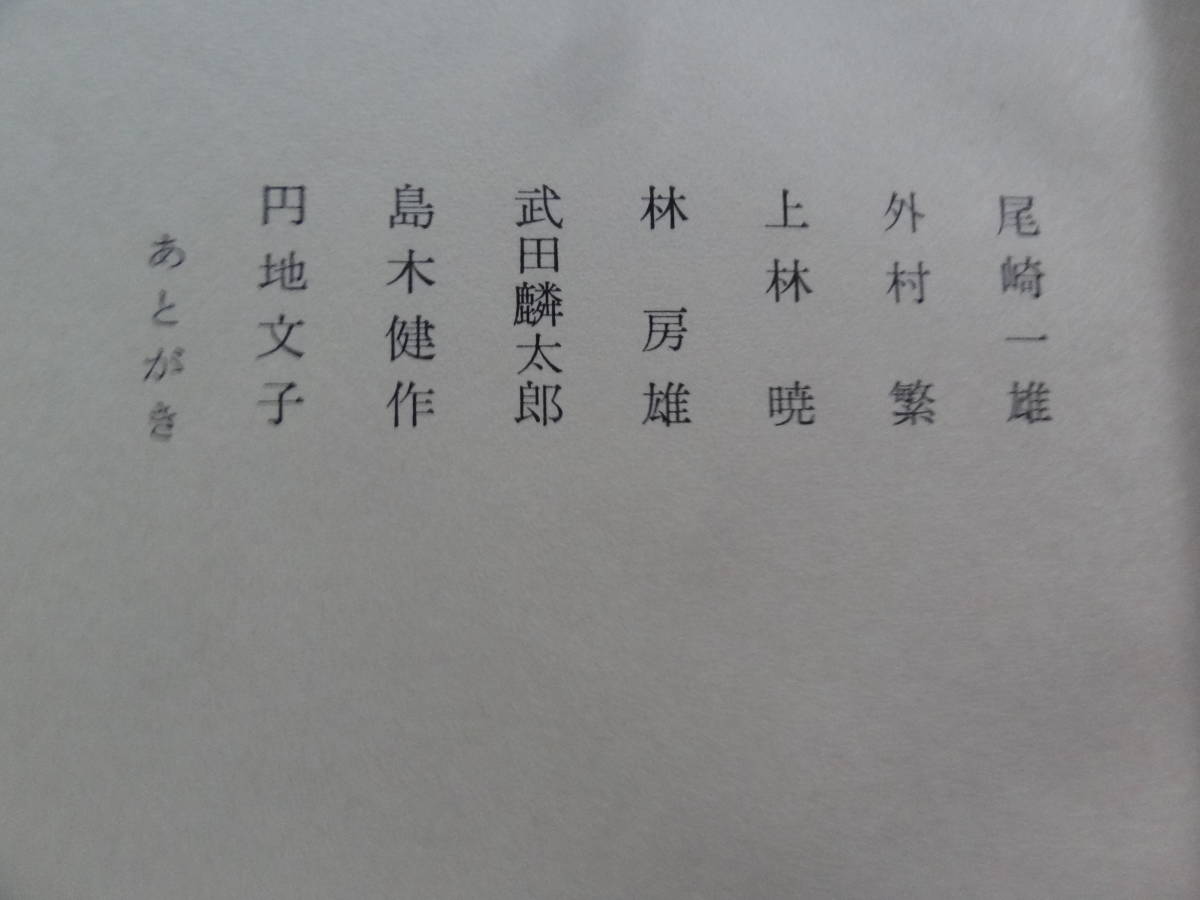 尾崎一雄
外村繁
上林暁
林房雄
武田麟太郎
島木健作
円地文子
あとがき